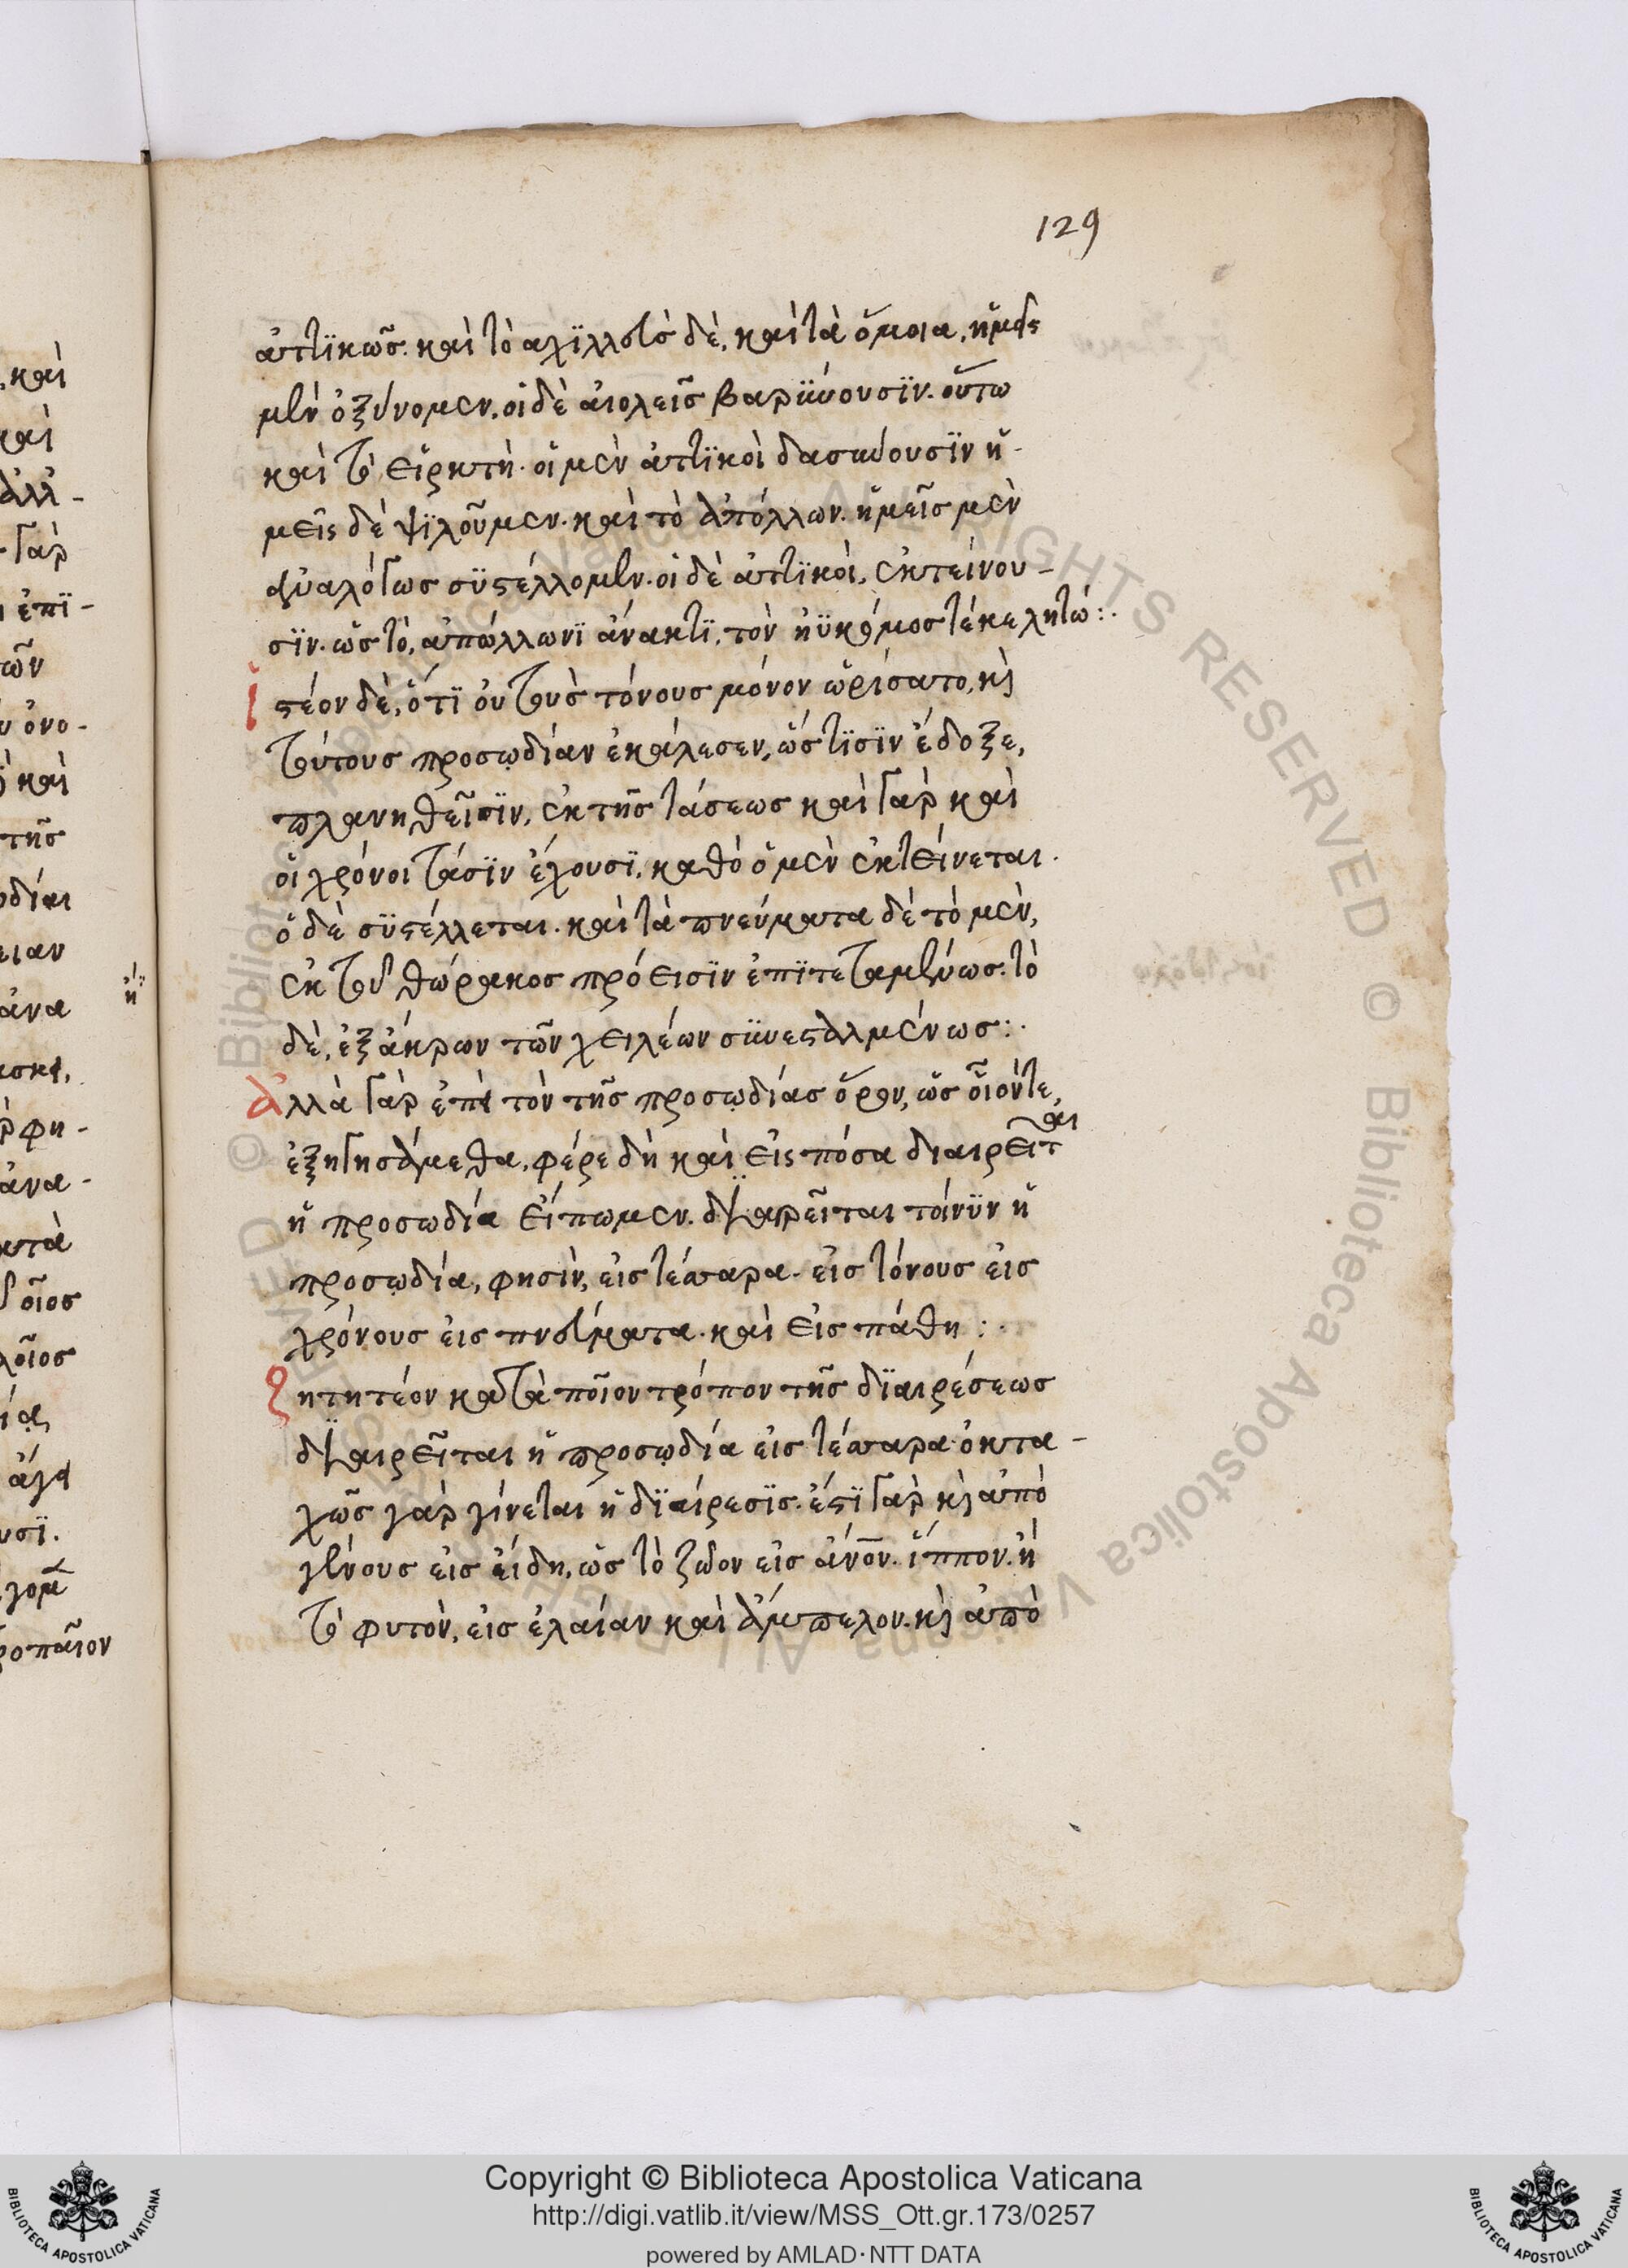 129
ἀττϊκῶς. καὶ τὸ ἀχϊλλεὺς δὲ, καὶ τὰ ὅμοια, ἡμεῖς
μὲν ὀξύνομεν. οἱ δὲ ἀιολεῖς βαρϋνουσϊν. οὕτω
καὶ τὸ εἱρκτὴ. οἱ μὲν ἀττϊκοὶ δασυνουσϊν ἡ-
μεῖς δὲ ψϊλοῦμεν. καὶ τὸ ἀπόλλων. ἡμεῖς μὲν
ἀναλόγως σϋστέλλομεν. οἱ δὲ ἀττϊκοὶ, ἐκτείνου-
σϊν. ὡς τὸ, ἀπώλλωνϊ ἄνακτϊ, τὸν ἠϋκόμος τέκε λητώ:.
ἰστέον δὲ, ὅτϊ οὐ τοὺς τόνους μόνον ὡρίσατο, κὶ
τούτους προσῳδίαν ἐκάλεσεν, ὥς τϊσϊν ἔδοξε,
πλανηθεῖσϊν, ἐκ τῆς τάσεως καὶ γὰρ καὶ
οἱ χρόνοι τάσϊν ἔχουσϊ, καθὸ ὁ μὲν ἐκτείνεται.
ὁ δὲ σϋστέλλεται. καὶ τὰ πνεύματα δὲ τὸ μὲν,
ἐκ τοῦ θώρακος πρόεισϊν ἐπϊτεταμένως. τὸ
δὲ, ἐξ ἄκρων τῶν χειλέων σϋνεσταλμένως:.
ἀλλὰ γὰρ ἐπεὶ τὸν τῆς προσῳδίας ὅρον, ὡς οἷόν τε,
ἐξηγησάμεθα, φέρε δὴ καὶ εἰς πόσα διαιρεῖται
ἡ προσωδία εἴπωμεν. δϊαιρεῖται τοίνϋν ἡ
προσῳδία, φησὶν, εἰς τέσσαρα. εἰς τόνους εἰς
χρόνους εἰς πνεύματα. καὶ εἰς πάθη:.
ζητητέον κατὰ ποῖον τρόπον τῆς δϊαιρέσεως
δϊαιρεῖται ἡ προσῳδία εἰς τέσσαρα. ὀκτα-
χῶς γὰρ γίνεται ἡ δϊαίρεσϊς. ἔστϊ γὰρ κὶ ἀπὸ
γένους εἰς εἴδη, ὡς τὸ ζῶον εἰς ἄνον. ἵππον. ἢ
τὸ φυτὸν, εἰς ἐλαίαν καὶ ἄμπελον. κὶ ἀπὸ
Copyright © Biblioteca Apostolica Vaticana
http://digi.vatlib.it/view/MSS_Ott.gr.173/0257
powered by AMLAD·NTT DATA